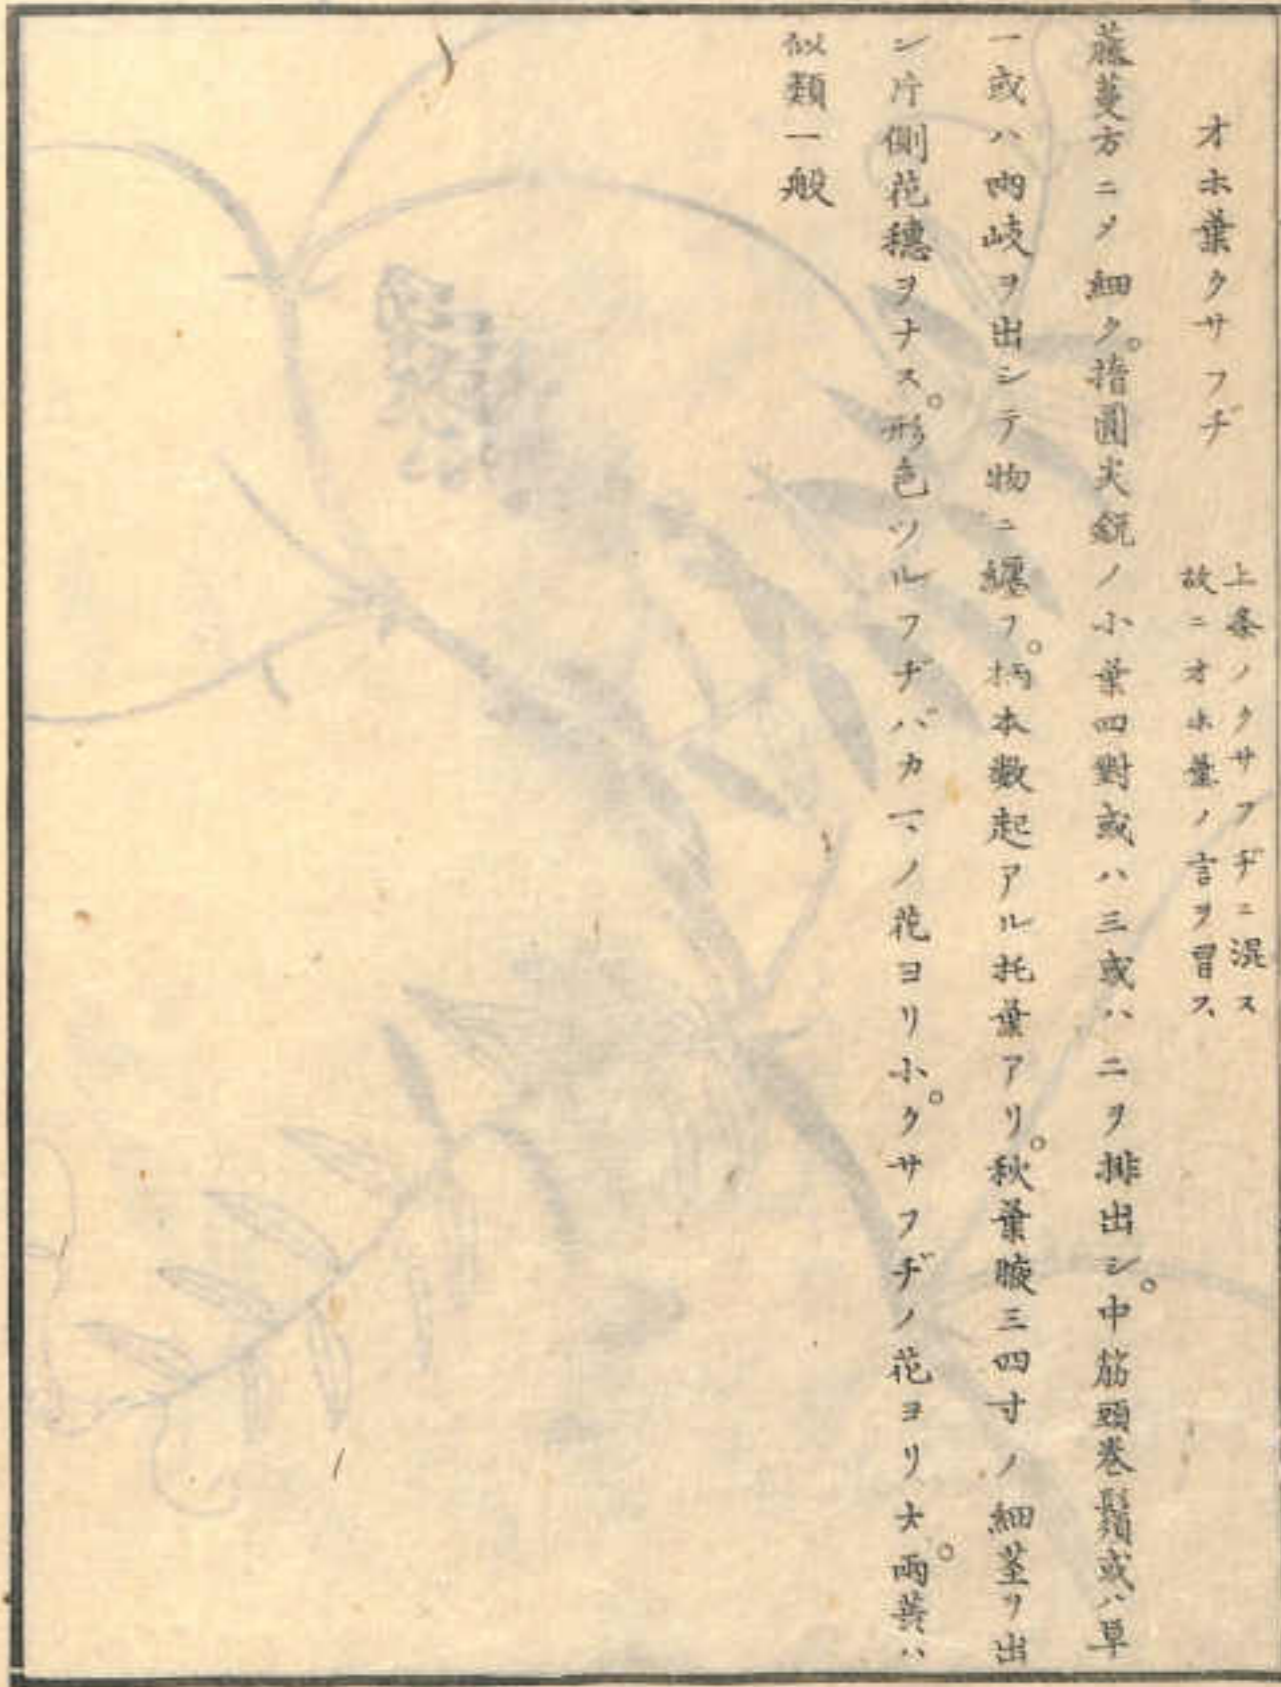 オホ葉クサフヂ
上条ノクサフヂニ混ス
故ニオホ葉ノ言ヲ冒ス
藤蔓方ニメ細ク。揩圓尖鋭ノ小葉四對或ハ三或ハ二ヲ排出シ。中筋頭巻鬚或ハ単
一或ハ両岐ヲ出シテ物ニ纏フ。柄本数起アル托葉アリ。秋葉腋三四寸ノ細茎ヲ出
シ片側花穂ヲナス。形色ツルフヂバカマノ花ヨリ小。クサフヂノ花ヨリ大。両葉ハ
似類一般